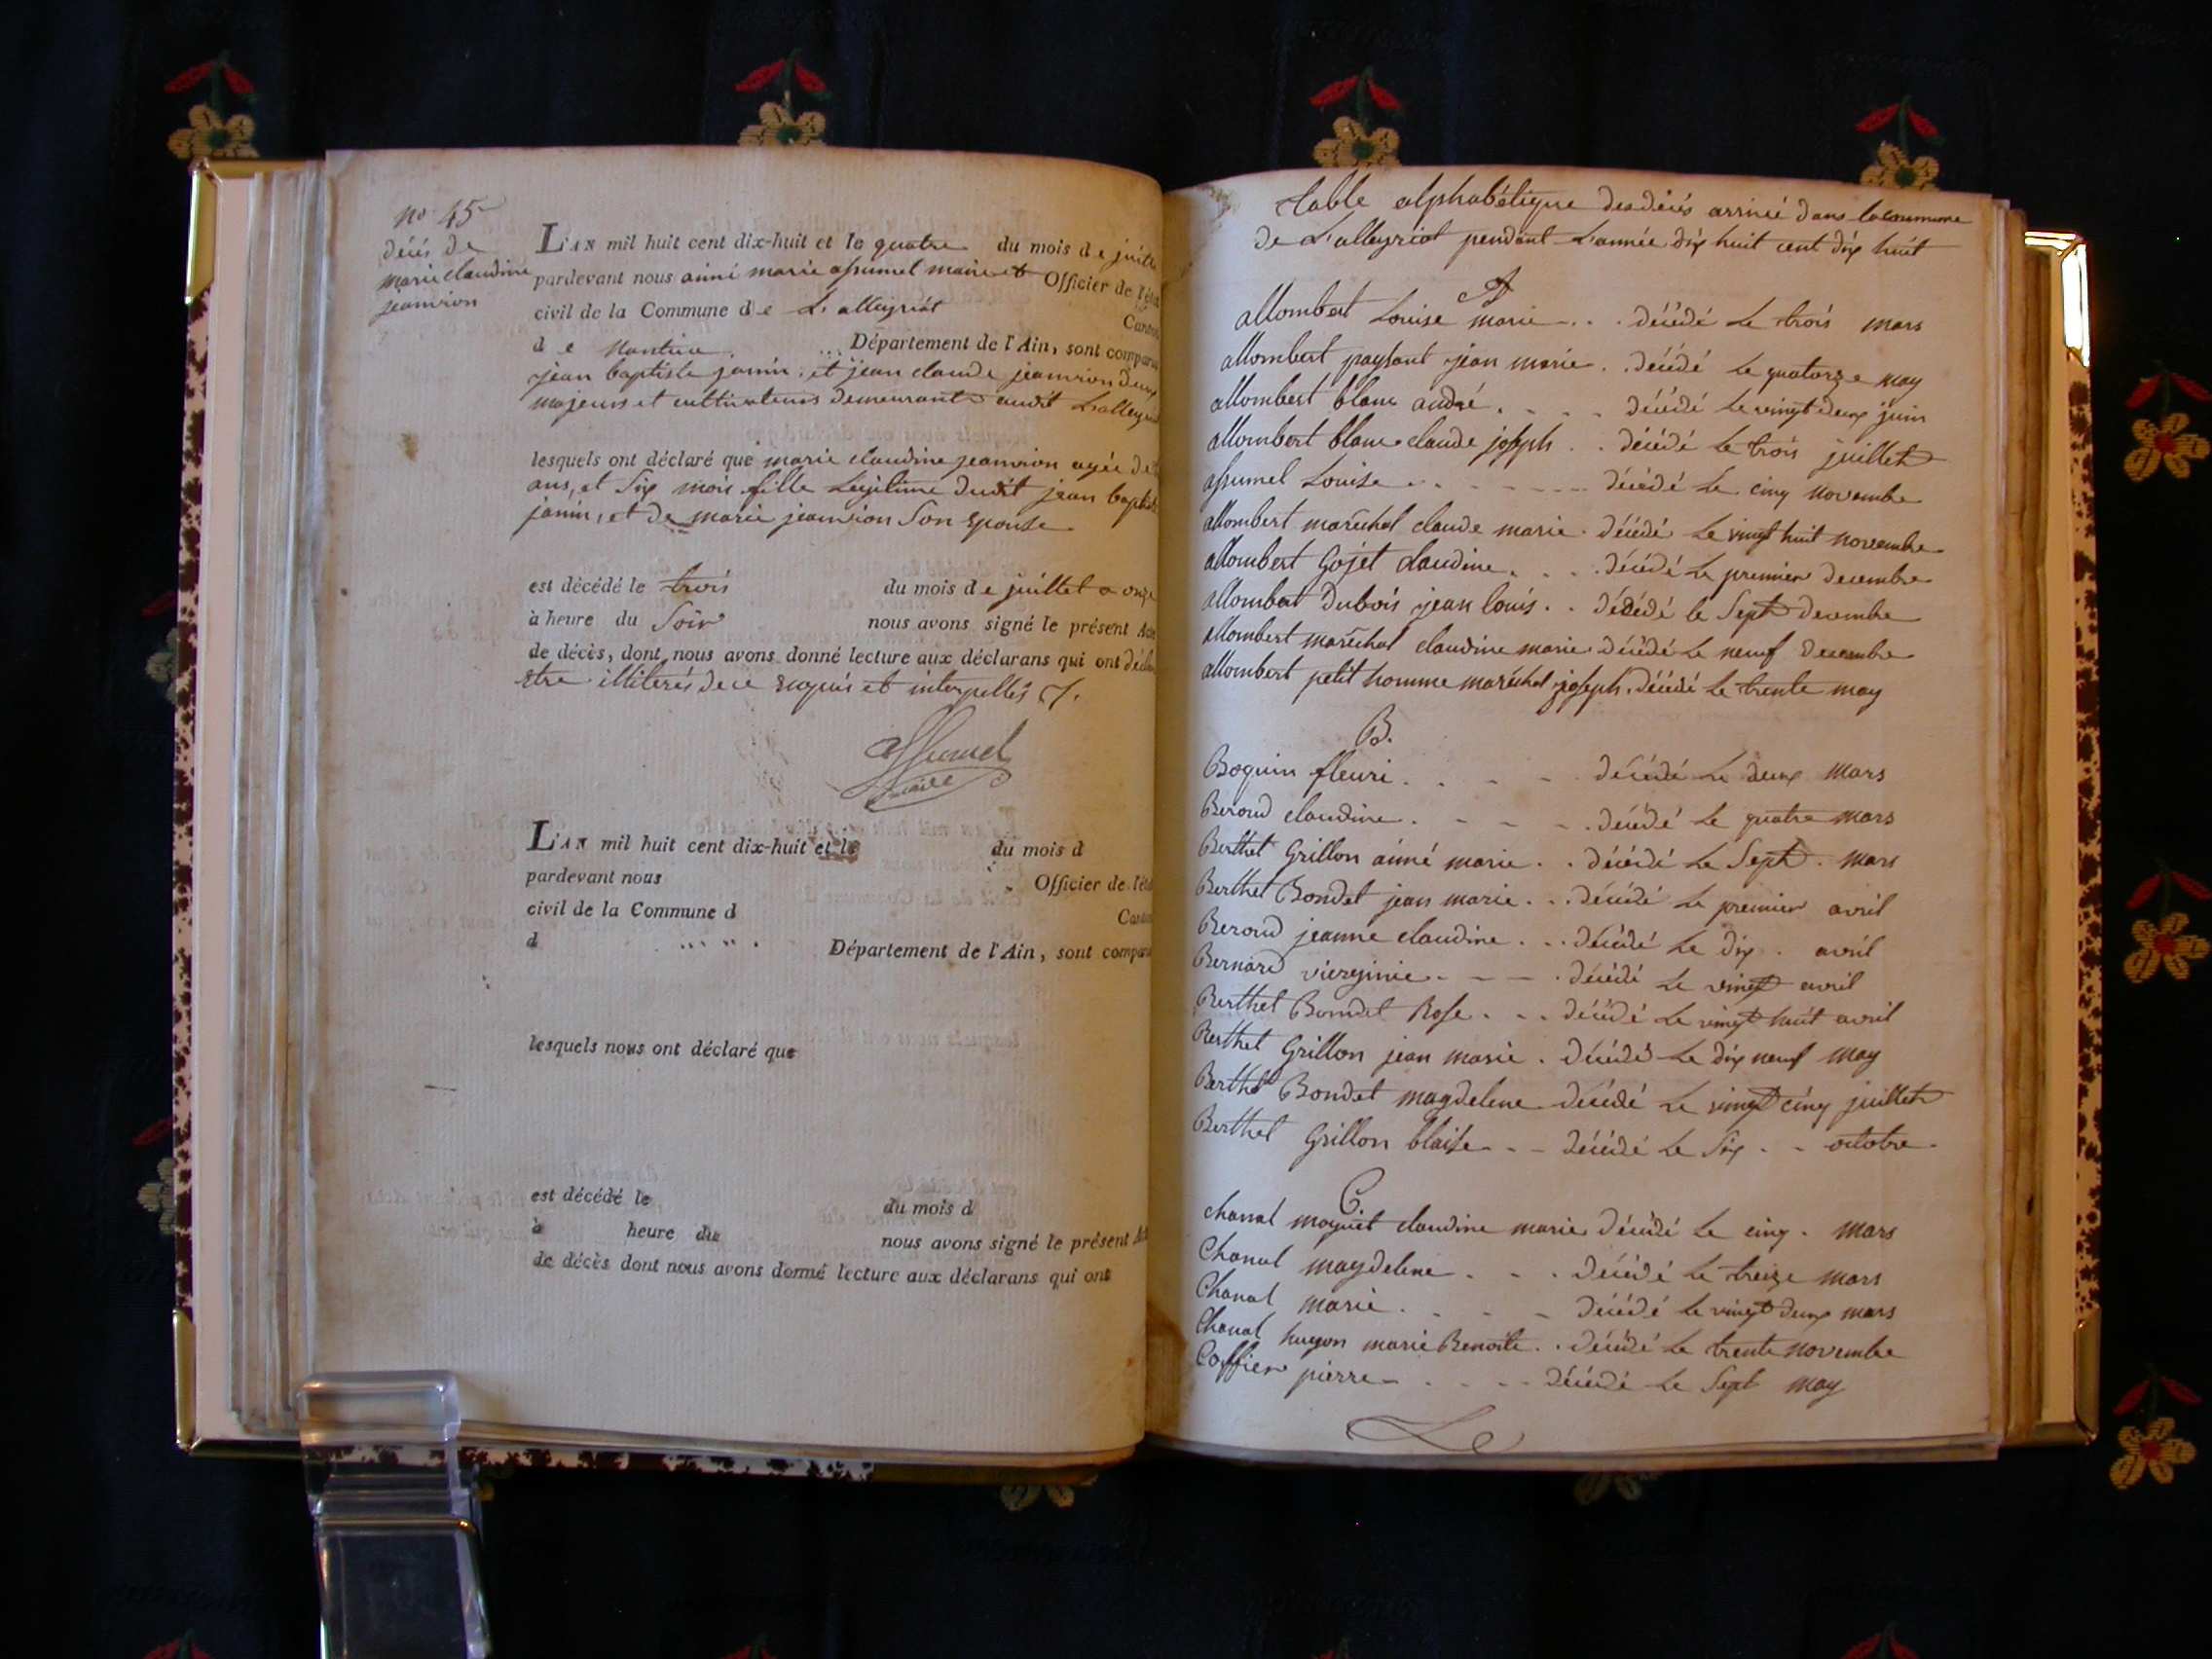 no 45
décés de
marie claudine
jeanvion
L'AN mil huit cent dix-huit et le quatre du mois de juill
pardevant nous aimé marie assumel maire et Officier de l'éta
civil de la Commune de L'alleyriat Canton
de Nantua Département de l'Ain, sont comparu
jean baptiste janin, et jean claude jeanvion deux
majeurs et cultivateurs demeurants audit L'alleyriat
lesquels ont déclaré que marie claudine jeanvion agée de
ans, et six mois fille Legitime dudit jean baptiste
janin, et de marie jeanvion son Epouse
est décédé le trois du mois de juillet a onze
à heure du Soir nous avons signé le présent Acte
de décès, dont nous avons donné lecture aux déclarans qui ont décla
etre illiterés de ce Enquis et interpellés
assumel
maire
L'AN mil huit cent dix-huit et le du mois d
pardevant nous Officier de l'éta
civil de la Commune d Canton
d Département de l'Ain, sont comparu
lesquels nous ont déclaré que
est décédé le du mois d
à heure du nous avons signé le présent Act
de décès dont nous avons donné lecture aux déclarans qui ont
Table alphabétique des décés arrivé dans la commune
de L'alleyriat pendant L'année dix huit cent dix huit
A
allombert Louise marie . . . décédé Le trois mars
allombert paysant jean marie . . décédé Le quatorze may
allombert blanc andré . . . . décédé Le vingt deux juin
allombert blanc claude joseph . . décédé Le trois juillet
assumel Louise . . . . . décédé Le cinq novembre
allombert maréchal claude marie . décédé Le vingt huit novembre
allombert Gojet claudine . . . . décédé Le premier decembre
allombert Dubois jean louis . . décédé le Sept decembre
allombert maréchal claudine marie décédé Le neuf decembre
allombert petit homme maréchal joseph . décédé Le trente may
B.
Boquin fleuri . . . . décédé Le deux mars
Beroud claudine . . . . . décédé Le quatre mars
Berthet Grillon aimé marie . . décédé Le Sept . mars
Berthet Bondet jean marie . . . décédé Le premier avril
Beroud jeanne claudine . . . décédé Le dix . avril
Bernard vierginie . . . . décédé Le vingt avril
Berthet Bondet Rose . . . décédé Le vingt huit avril
Berthet Grillon jean marie . décédé Le dix neuf may
Berthet Bondet magdelene décédé Le vingt cinq juillet
Berthet Grillon blaise . . décédé Le Six . . octobre .
C.
chanal moquet claudine marie décédé Le cinq . mars
Chanal magdelene . . . décédé Le treize mars
Chanal marie . . . . décédé Le vingt deux mars
Chanal hugon marie Benoite . . décédé Le trente novembre
Coffier pierre . . . . décédé Le Sept may